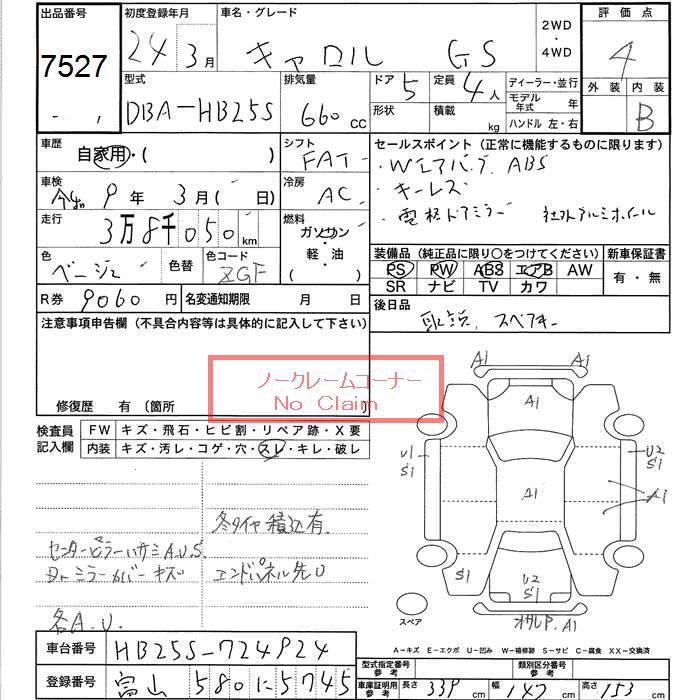 出品番号 初度登録年月 車名・グレード 2WD・4WD 評価点
7527 24年3月 キャロル GS 4
型式 排気量 ドア 定員 ディーラー・並行 外装 内装
DBA-HB25S 660cc 5 4人 モデル年式 年 B
形状 積載 kg ハンドル 左・右
車歴 シフト セールスポイント(正常に機能するものに限ります)
自家用・( ) FAT ・Wエアバッグ ABS
車検 冷房 ・キーレス
令和9年3月( 日) AC ・電格ドアミラー 社外アルミホイール
走行 燃料
3万8千050km ガソリン・軽・油( )
色 色替 色コード 装備品(純正品に限り○をつけてください) 新車保証書
ベージュ ZGF PS PW ABS エアB AW 有・無
SR ナビ TV カワ
R券 9060円 名変通知期限 月 日 後日品
注意事項申告欄(不具合内容等は具体的に記入して下さい) 取説、スペアキー
ノークレームコーナー
No Claim
修復歴 有 〔箇所
検査員記入欄 FW キズ・飛石・ヒビ割・リペア跡・X要
内装 キズ・汚レ・コゲ・穴・スレ・キレ・破レ
A1 A1
A1
U1 S1 U2 S1
A1 A1
S1 U2 S1 S1
A1
スペア
冬タイヤ積込有
センターピラーハサミA.U.S.
ミラーカバーキズ エンドパネル先U
各A.U.
A-キズ E-エクボ U-凹み W-補修跡 S-サビ C-腐食 XX-交換済
車台番号 HB25S-724924 型式指定番号 参考 類別区分番号 参考
登録番号 富山 580 に 5745 車庫証明用参考 長さ 339cm 幅 147cm 高さ 153cm